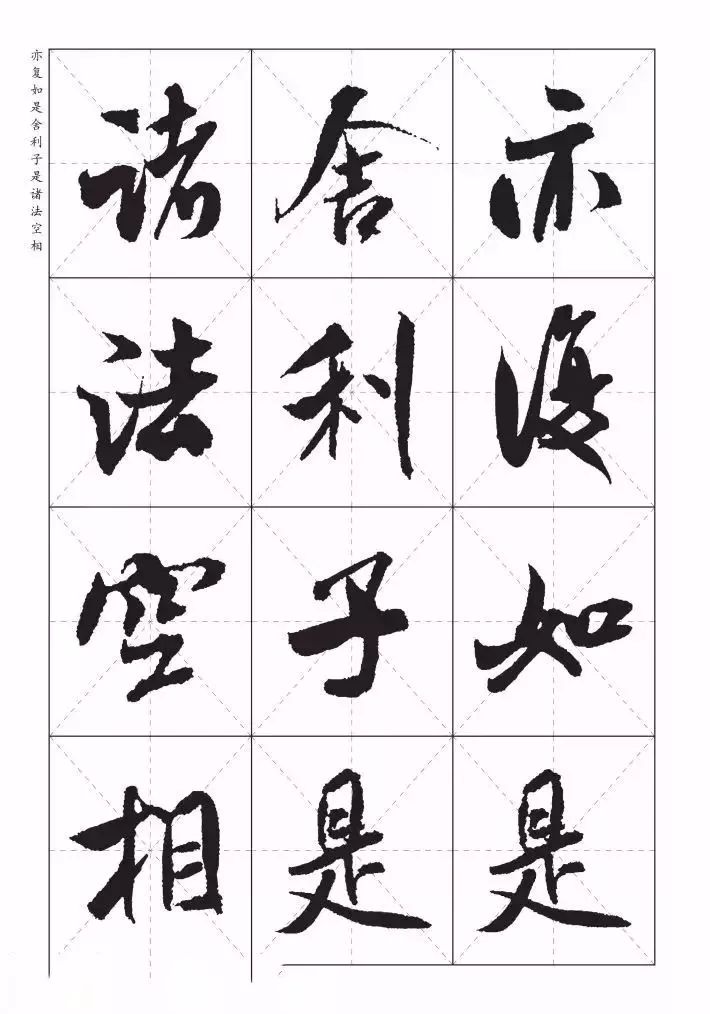 亦復如是
舍利子是
諸法空相
亦复如是舍利子是诸法空相